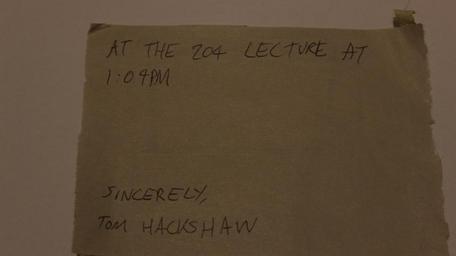 AT THE 204 LECTURE AT
1:09PM
SINCERELY,
TOM HACKSHAW